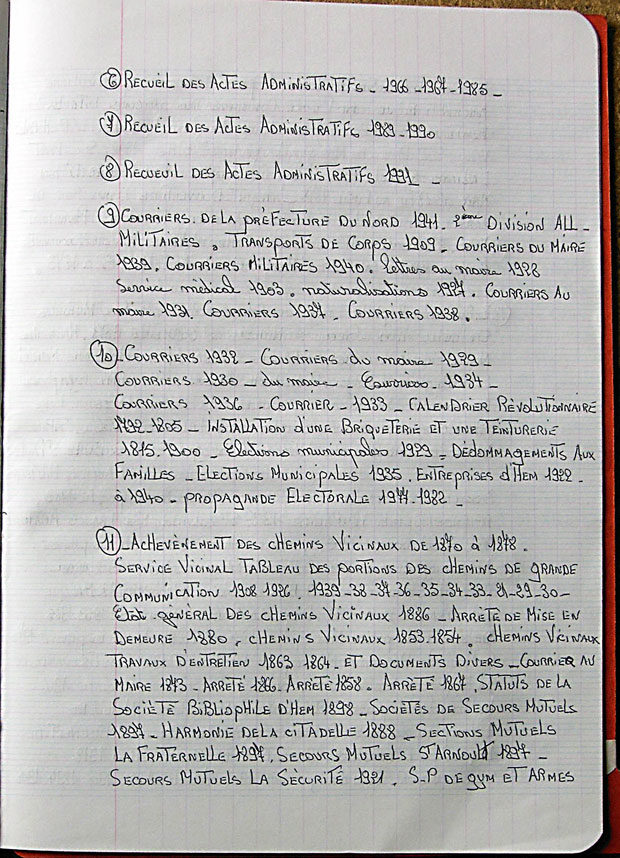 ⑥ RECUEIL DES ACTES ADMINISTRATIFS _ 1966 _ 1967 _ 1985 _
⑦ RECUEIL DES ACTES ADMINISTRATIFS 1989 _ 1990
⑧ RECUEUIL DES ACTES ADMINISTRATIFS 1991 _
⑨ COURRIERS. DE LA PRÉFECTURE DU NORD 1941. 2ème DIVISION ALL _
MILITAIRES. TRANSPORTS DE CORPS 1909 _ COURRIERS DU MAIRE
1939. COURRIERS MILITAIRES 1940. Lettres au maire 1928
Service médical 1903. naturalisations 1927. COURRIERS AU
maire 1931. COURRIERS 1937. COURRIERS 1938.
⑩ _ COURRIERS 1932 _ COURRIERS du maire 1929 _
COURRIERS 1930 _ du maire _ Courriers _ 1934 _
COURRIERS 1936 _ COURRIER _ 1933 _ CALENDRIER RÉVOLUTIONNAIRE
1792.1805 _ INSTALLATION D'UNE BRIQUETERIE ET UNE TEINTURERIE
1815.1900 _ Elections municipales 1929 _ DÉDOMMAGEMENTS AUX
FAMILLES _ ELECTIONS MUNICIPALES 1935. ENTREPRISES d'HEM 1922
à 1940 _ PROPAGANDE ELECTORALE 1977.1982 _
⑪ _ ACHEVÈNEMENT DES CHEMINS VICINAUX DE 1870 à 1878.
SERVICE VICINAL TABLEAU DES PORTIONS DES CHEMINS DE GRANDE
COMMUNICATION 1908 1926. 1939 _ 38 _ 37 _ 36 _ 35 _ 34 _ 33 _ 31 _ 29 _ 30 _
Etat général DES CHEMINS VICINAUX 1886 _ ARRÊTÉ DE MISE EN
DEMEURE 1880. CHEMINS VICINAUX 1853.1854. CHEMINS VICINAUX
TRAVAUX D'ENTRETIEN 1863 1864. ET DOCUMENTS DIVERS _ COURRIER AU
MAIRE 1873 _ ARRETÉ ARRETÉ 1858. ARRÊTÉ 1867. STATUTS DE LA
SOCIÉTÉ BIBLIOPHILE D'HEM 1898 _ SOCIÉTÉS DE SECOURS MUTUELS
1897 _ HARMONIE DE LA CITADELLE 1888 _ SECTIONS MUTUELS
LA FRATERNELLE 1897. SECOURS MUTUELS ST ARNOULT 1897 _
SECOURS MUTUELS LA SÉCURITÉ 1921. S.P DE GYM ET ARMES